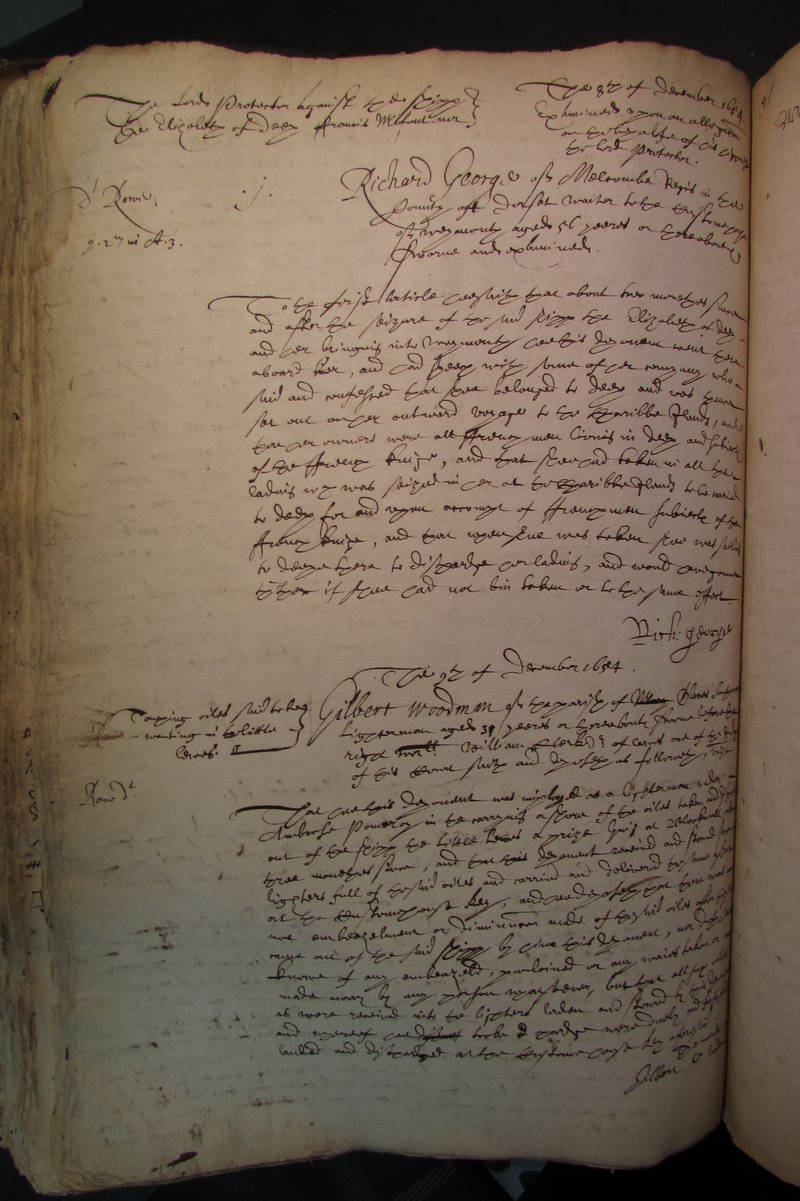 The Lord Protector against the shipp
the Elizabeth of Deep Francis
The 8th of December 1654.
Examined upon an allegation
on the behalfe of his
the Lord Protector.
Dt Rowe
.j.
Richard George of Melcombe Regis in the
County of Dorset waiter to the Customehouse
of Weymouth aged 56 yeeres or thereabouts
sworne and examined.
To the first article hee saith that about two monethes since
and after the seizure of the said shipp the Elizabeth of Deep
and her bringing into Weymouth hee this deponent went then
aboard her, and had speech with some of her company who
said and confessed that shee belonged to Deep and was thence
set out on her outward voyage to the Charibbe Islands, and
that her owners were all French men living in Deep and subjects
of the French King, and that shee had taken in all the
lading which was seized in her at the Charibbe Islands to be carried
to Deep for and upon accompt of Frenchmen subjects of the
French King, and that when shee was taken shee was sailing
to Deepe there to discharge her lading, and would have gone
thither if shee had not bin taken or to the same effect.
Rich: George
The 9th of December 1654.
Touching oiles said to be
wanting in the little
Gilbert Woodman of the parish of
Lighterman aged 39 yeeres or thereabouts sworne before the
right William Clerke dr of lawes one of the
of this Court saith and deposeth as followeth, vizt
Rowe dt
That hee this deponent was imployed as a lighterman under
Ambrose Pomeroy in the carrying ashore of the oiles taken
out of the shipp the little a prize at Blackwall
three monethes since, and that this deponent received and
lighters full of the said oiles and carried and delivered the same
at the Customehouse key, and hee deposeth that there was
noe embeazelment or diminution made of the said oiles after
came out of the said shipp by him this deponent, nor
knowe of any embeazled, purloined or any waies taken or
made away by any person whatsoever, but that all
as were received into the lighters laden
and whereof hee had to be charge were duely
landed and discharged at the Customehouse key
Gilbert